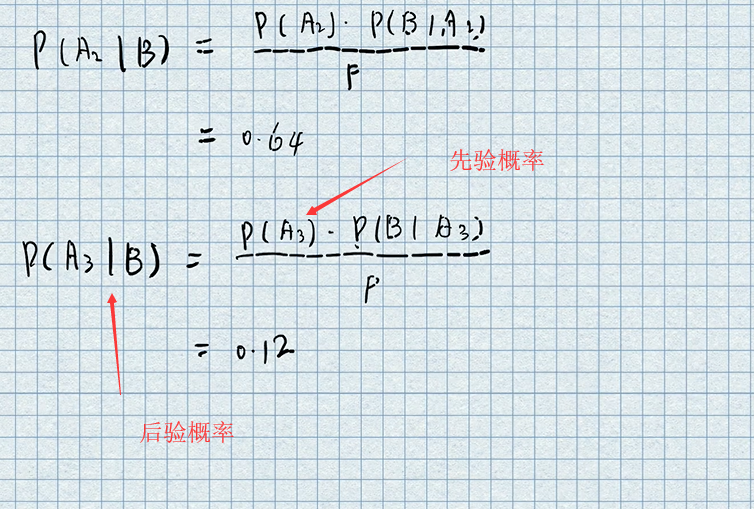 P(A₂|B) = P(A₂)·P(B|A₂) / P
= 0.64
先验概率
P(A₃|B) = P(A₃)·P(B|A₃) / P
= 0.12
后验概率